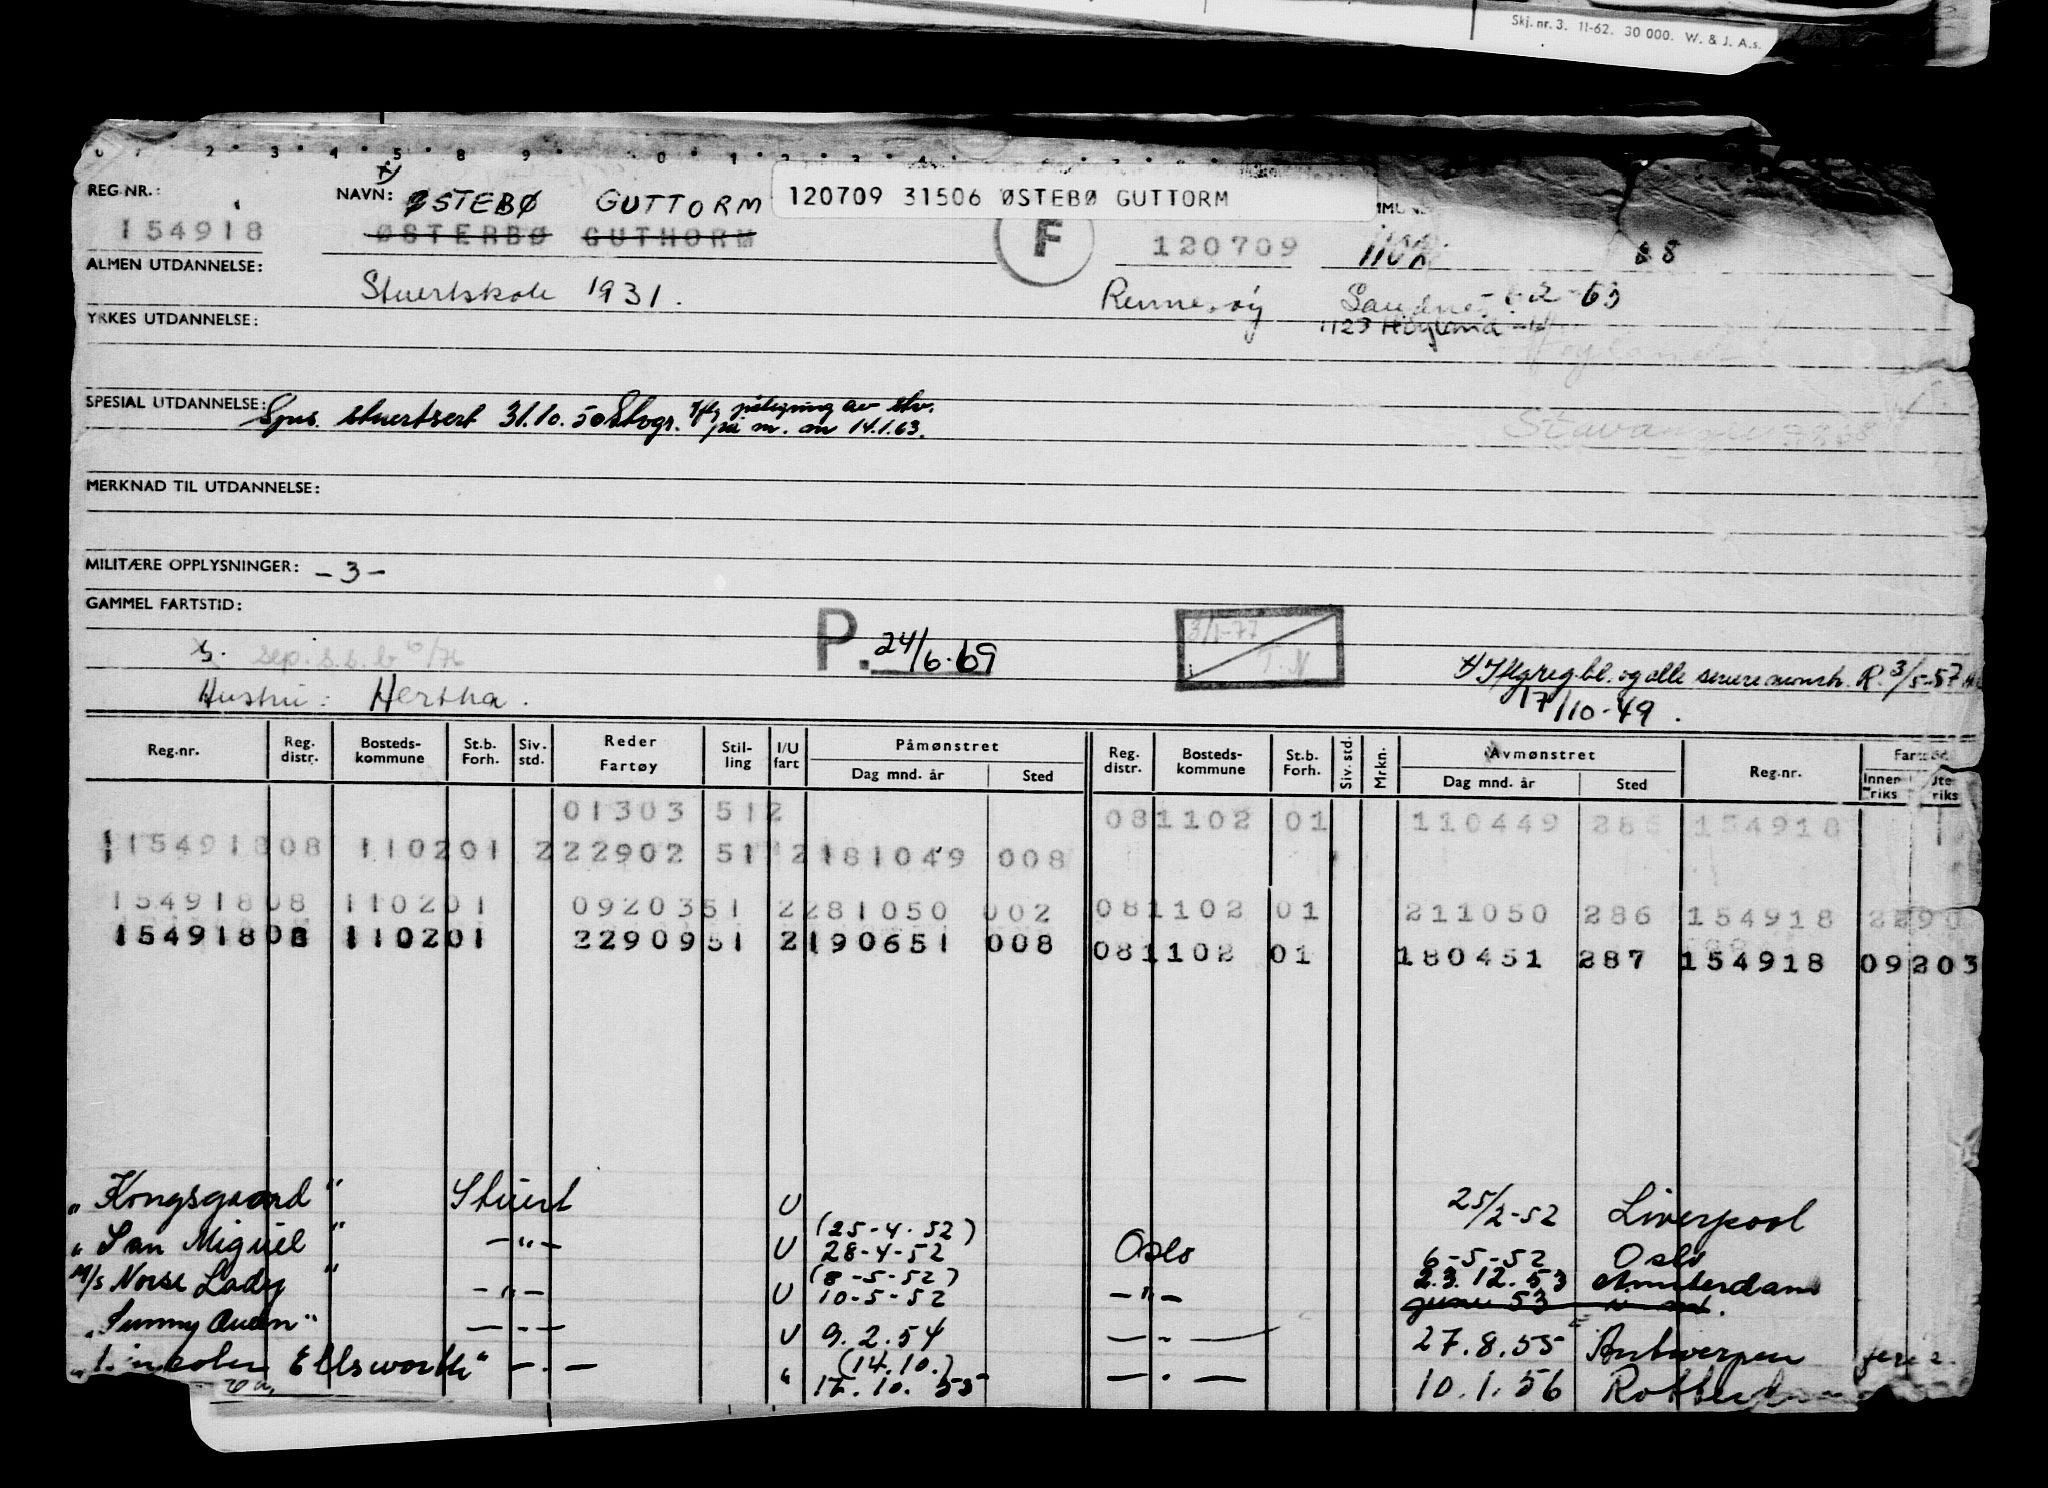 Skj. nr. 3. 11-62. 30 000. W. & J. A.s.
REG.NR.: NAVN: ØSTEBØ GUTTORM 120709 31506 ØSTEBØ GUTTORM
154918 ØSTERBØ GUTHORM F 120709 1102 8
ALMEN UTDANNELSE: Stuertskole 1931. Rennesøy
YRKES UTDANNELSE: 1123 Høyland
SPESIAL UTDANNELSE: Spes. stuertsert 31.10.50 Stvgr. Iflg påtegning av stv.
på m. an 14.1.63.
MERKNAD TIL UTDANNELSE:
MILITÆRE OPPLYSNINGER: -3-
GAMMEL FARTSTID:
P. 24/6.69 3/1-77
Hustru: Hertha.
Iflg reg.bl. og alle senere mønstr. R. 3/5-57
17/10-49.
Reg.nr. Reg. distr. Bosteds-kommune St.b. Forh. Siv. std. Reder Fartøy Stil-ling I/U fart Påmønstret Dag mnd. år Sted Reg. distr. Bosteds-kommune St.b. Forh. Siv. std. Mrkn. Avmønstret Dag mnd. år Sted Reg.nr. Innen-riks
01303 512 081102 01 110449 286 154918
115491808 110201 222902 51 2181049 008
15491808 110201 0920351 2281050 002 081102 01 211050 286 154918 2290
15491808 110201 2290951 2190651 008 081102 01 180451 287 154918 09203
"Kongsgaard" Stuert U 25/2-52 Liverpool
"San Miguel" -"- U (25-4-52) 28-4-52 Oslo 6-5-52 Oslo
M/s Norse Lady" -"- U (8-5-52) 10-5-52 -"- 23.12.53 Amsterdam
53
"Sunny Queen" -"- U 9.2.54 -"- 27.8.55 Antwerpen
"Lincoln Ellsworth" -"- " (14.10.) 17.10.55 -"- 10.1.56